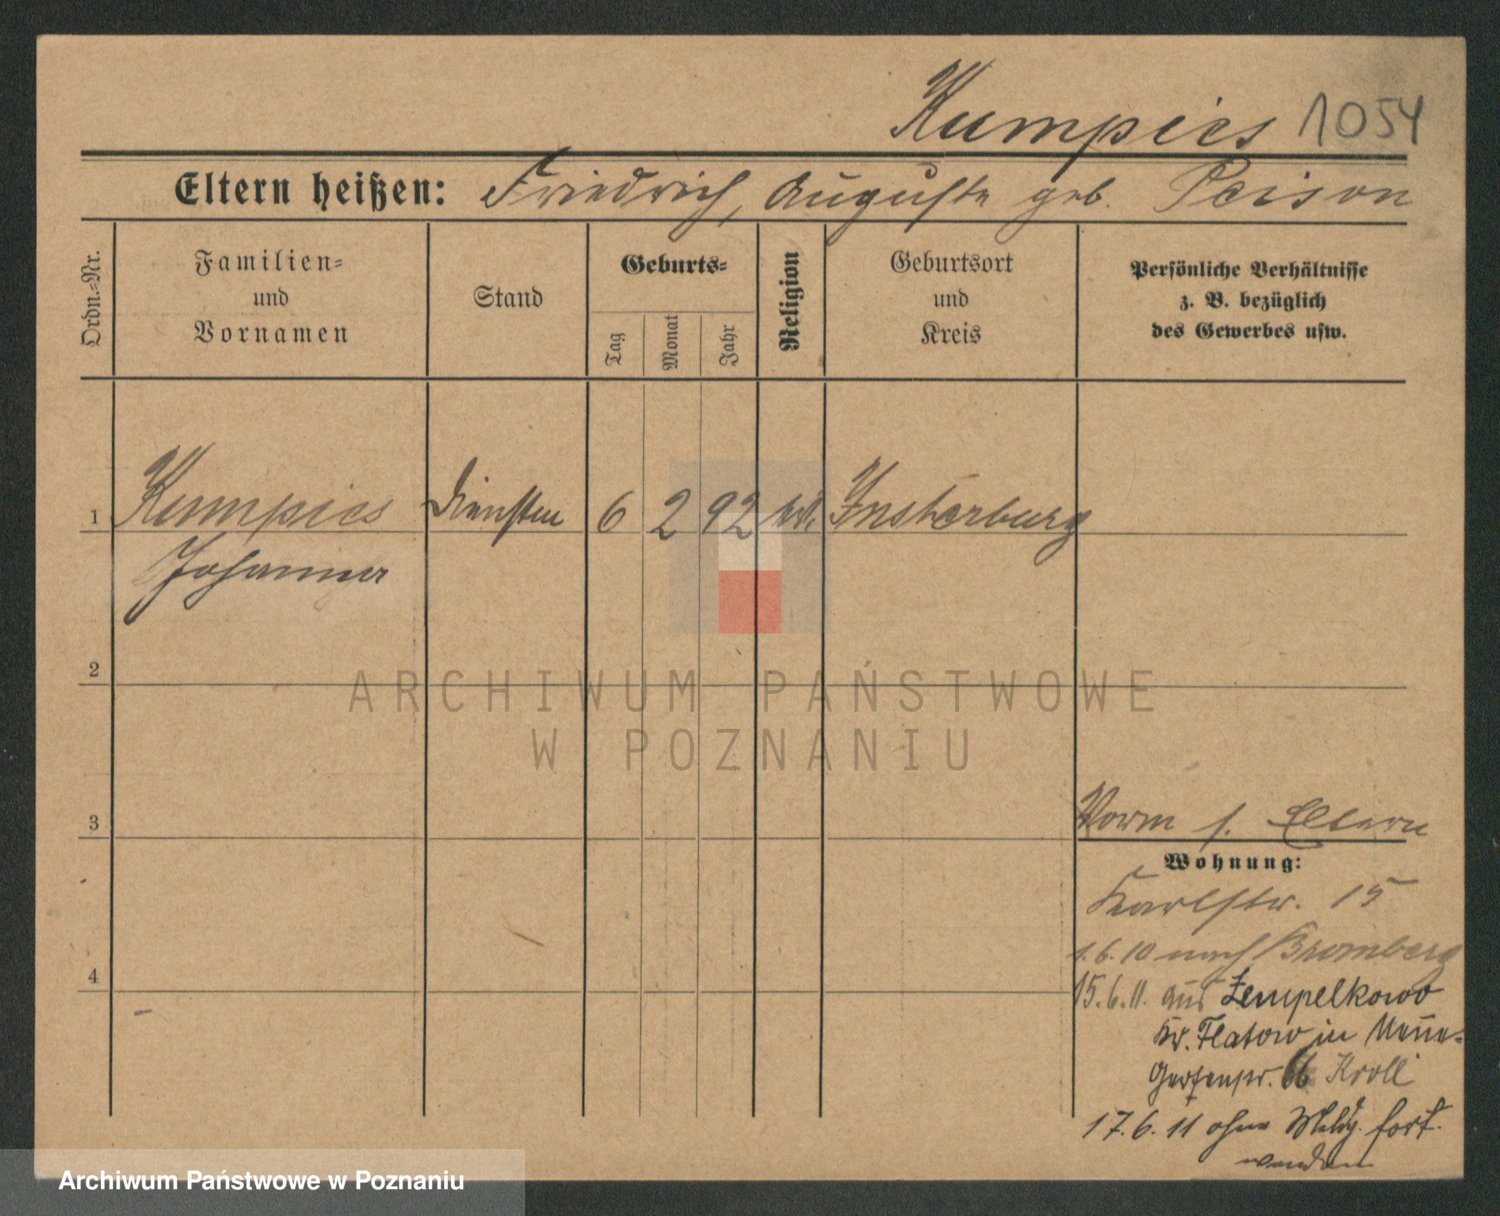 Kumpies 1054
Eltern heißen: Friedrich, Auguste geb. Peison
Ordn.-Nr.
Familien-
und
Vornamen
Stand
Geburts-
Tag
Monat
Jahr
Religion
Geburtsort
und
Kreis
Persönliche Verhältnisse
z. B. bezüglich
des Gewerbes usw.
1 Kumpies 6 2 92 Insterburg
2
3
Vorm s. Eltern
Wohnung:
Karlstr. 15
4
1.6.10 nach Bromberg
15.6.11. aus Zempelkowo
Kr. Flatow in Neue-
Gartenstr. 66 Kroll
17.6.11 ohne Meldg. fort.
ARCHIWUM PAŃSTWOWE
W POZNANIU
Archiwum Państwowe w Poznaniu